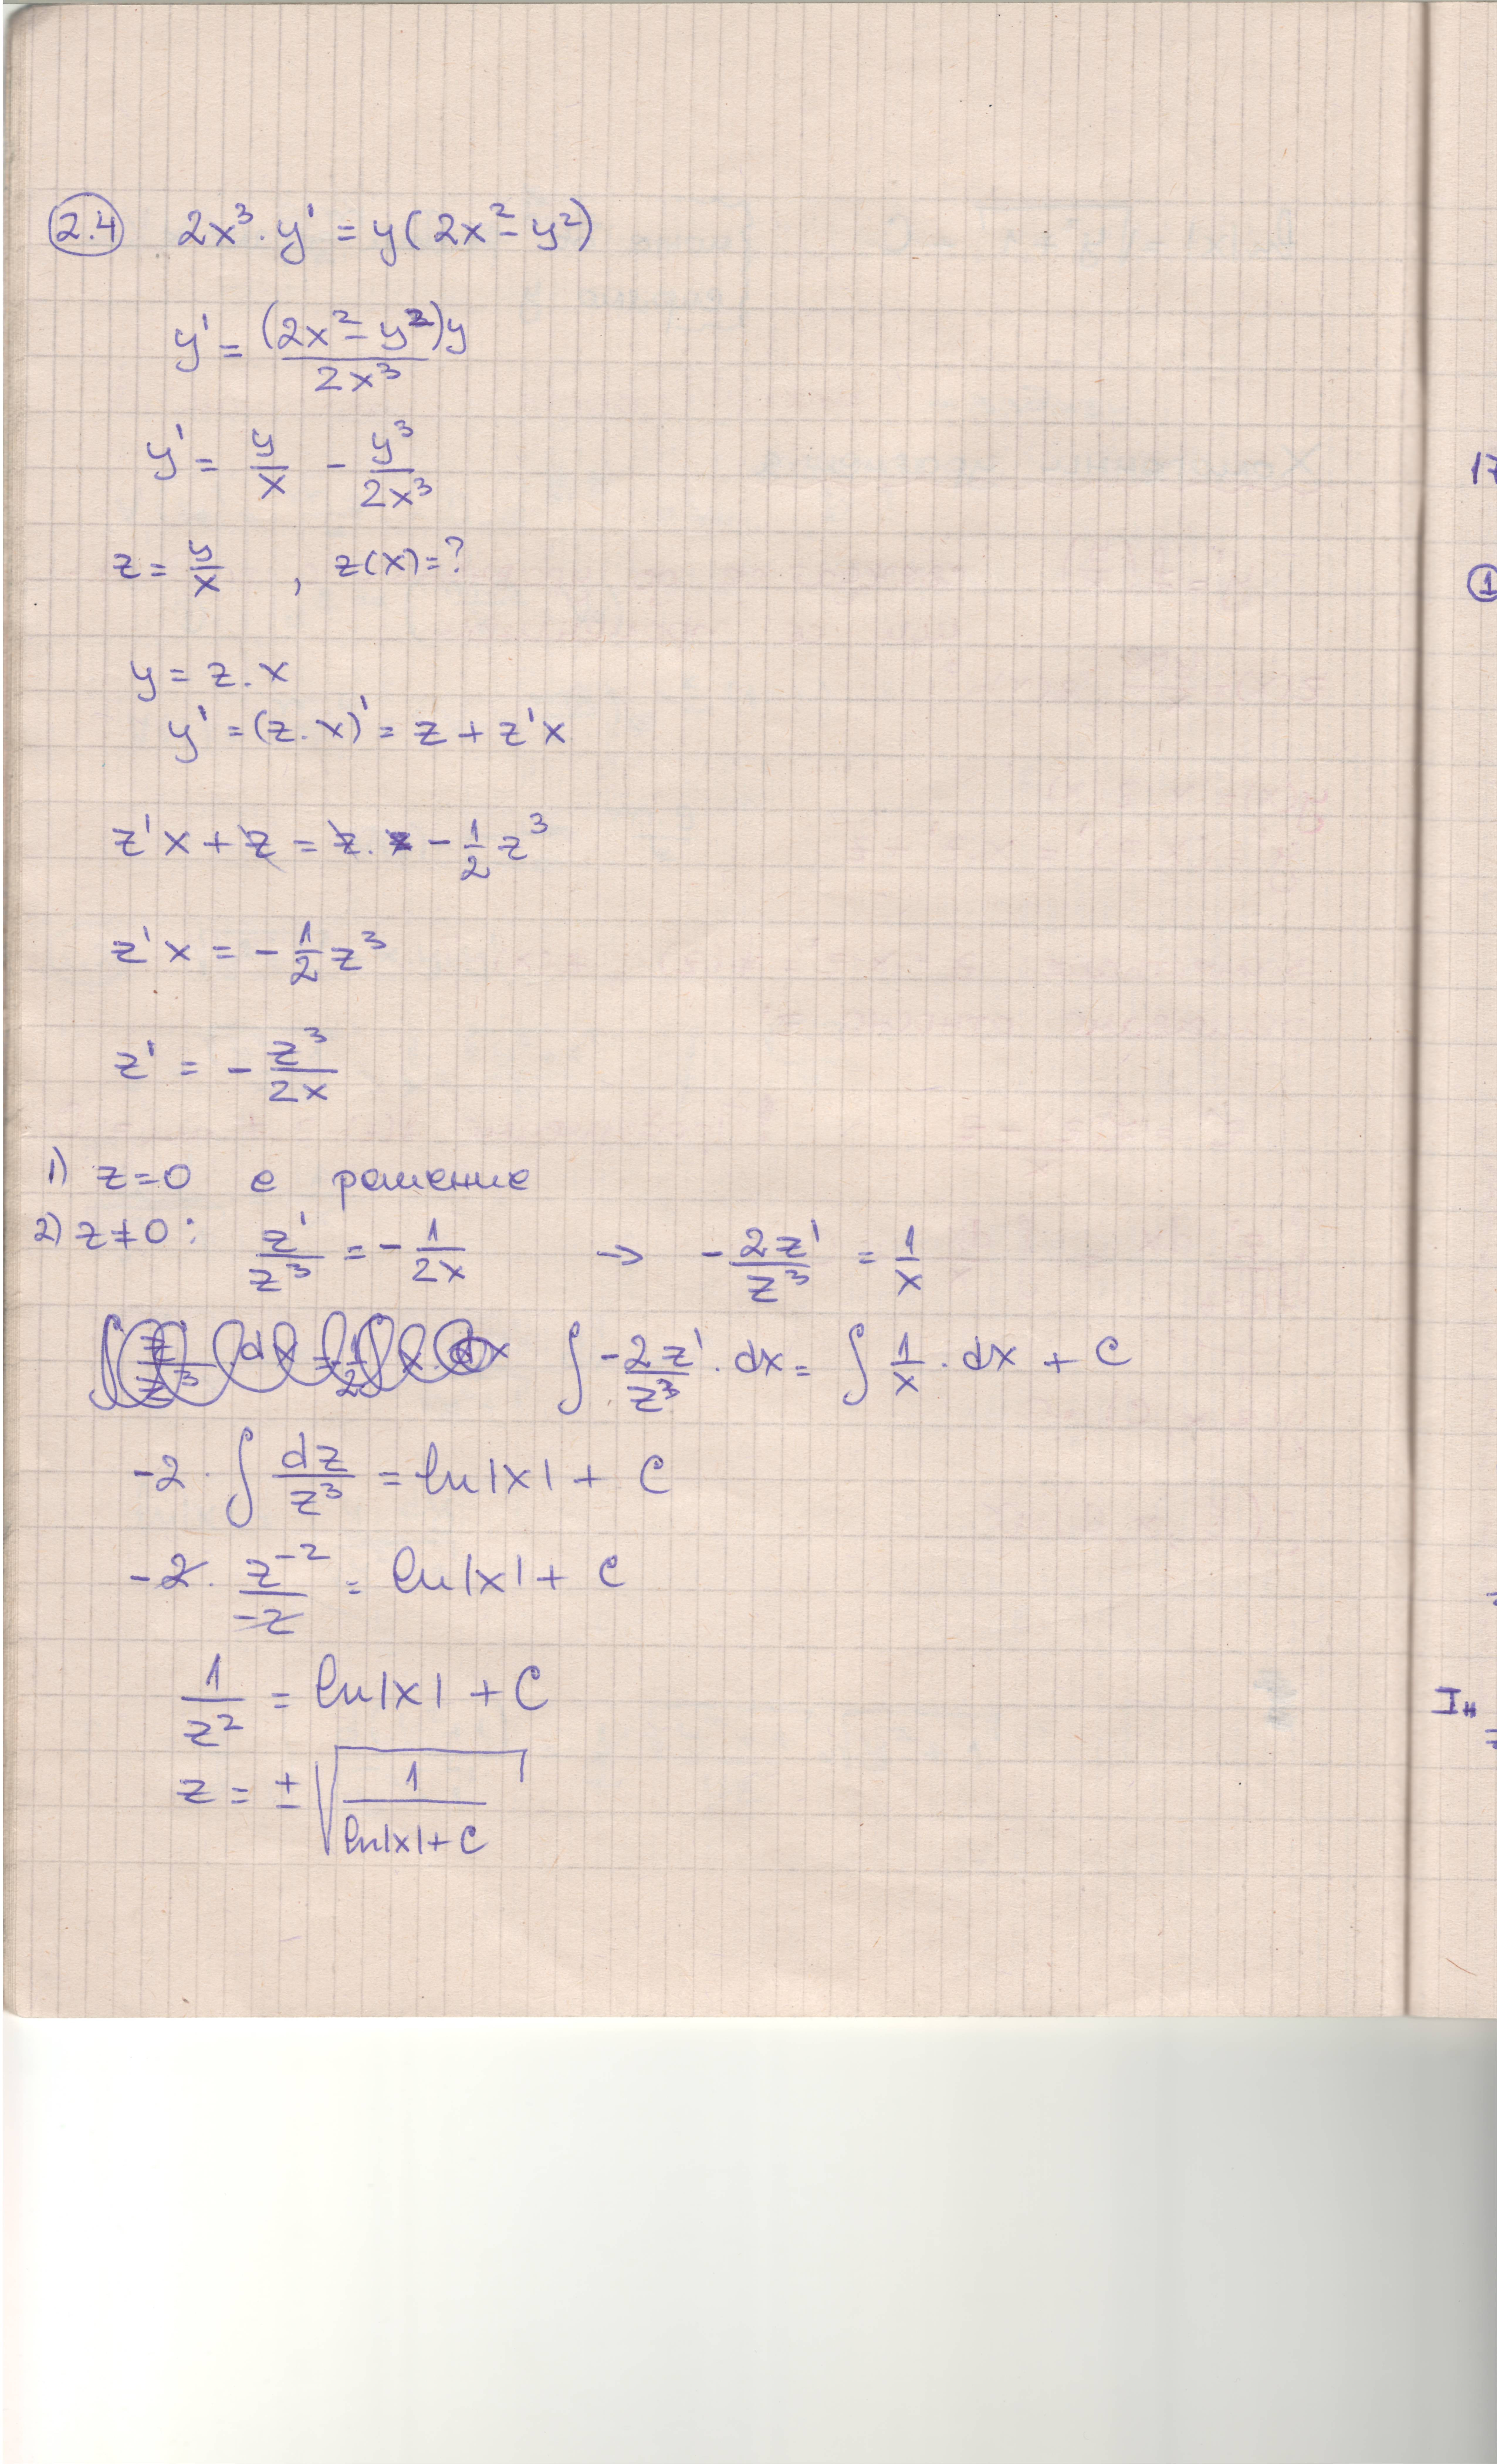 2.4 2x³. y' = y(2x² - y²)
y' = (2x² - y²)y / 2x³
y' = y/x - y³/2x³
z = y/x , z(x) = ?
y = z. x
y' = (z. x)' = z + z'x
z'x + z = z. - 1/2 z³
z'x = - 1/2 z³
z' = - z³/2x
1) z=0 е решение
2) z≠0: z'/z³ = - 1/2x → - 2z'/z³ = 1/x
∫ -2z'/z³ . dx = ∫ 1/x . dx + C
-2 . ∫ dz/z³ = ln|x| + C
-2. z⁻²/-2 = ln|x| + C
1/z² = ln|x| + C
z = ± √(1/(ln|x|+C))
17
1
Iн